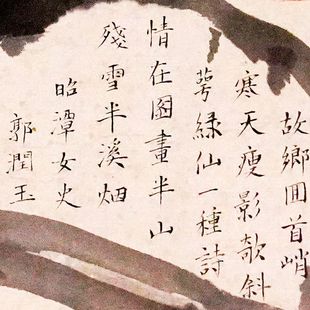 故鄉囬首峭
寒天瘦影欹斜
萼綠仙一種詩
情在圖畫半山
殘雪半溪烟
昭潭女史
郭潤玉